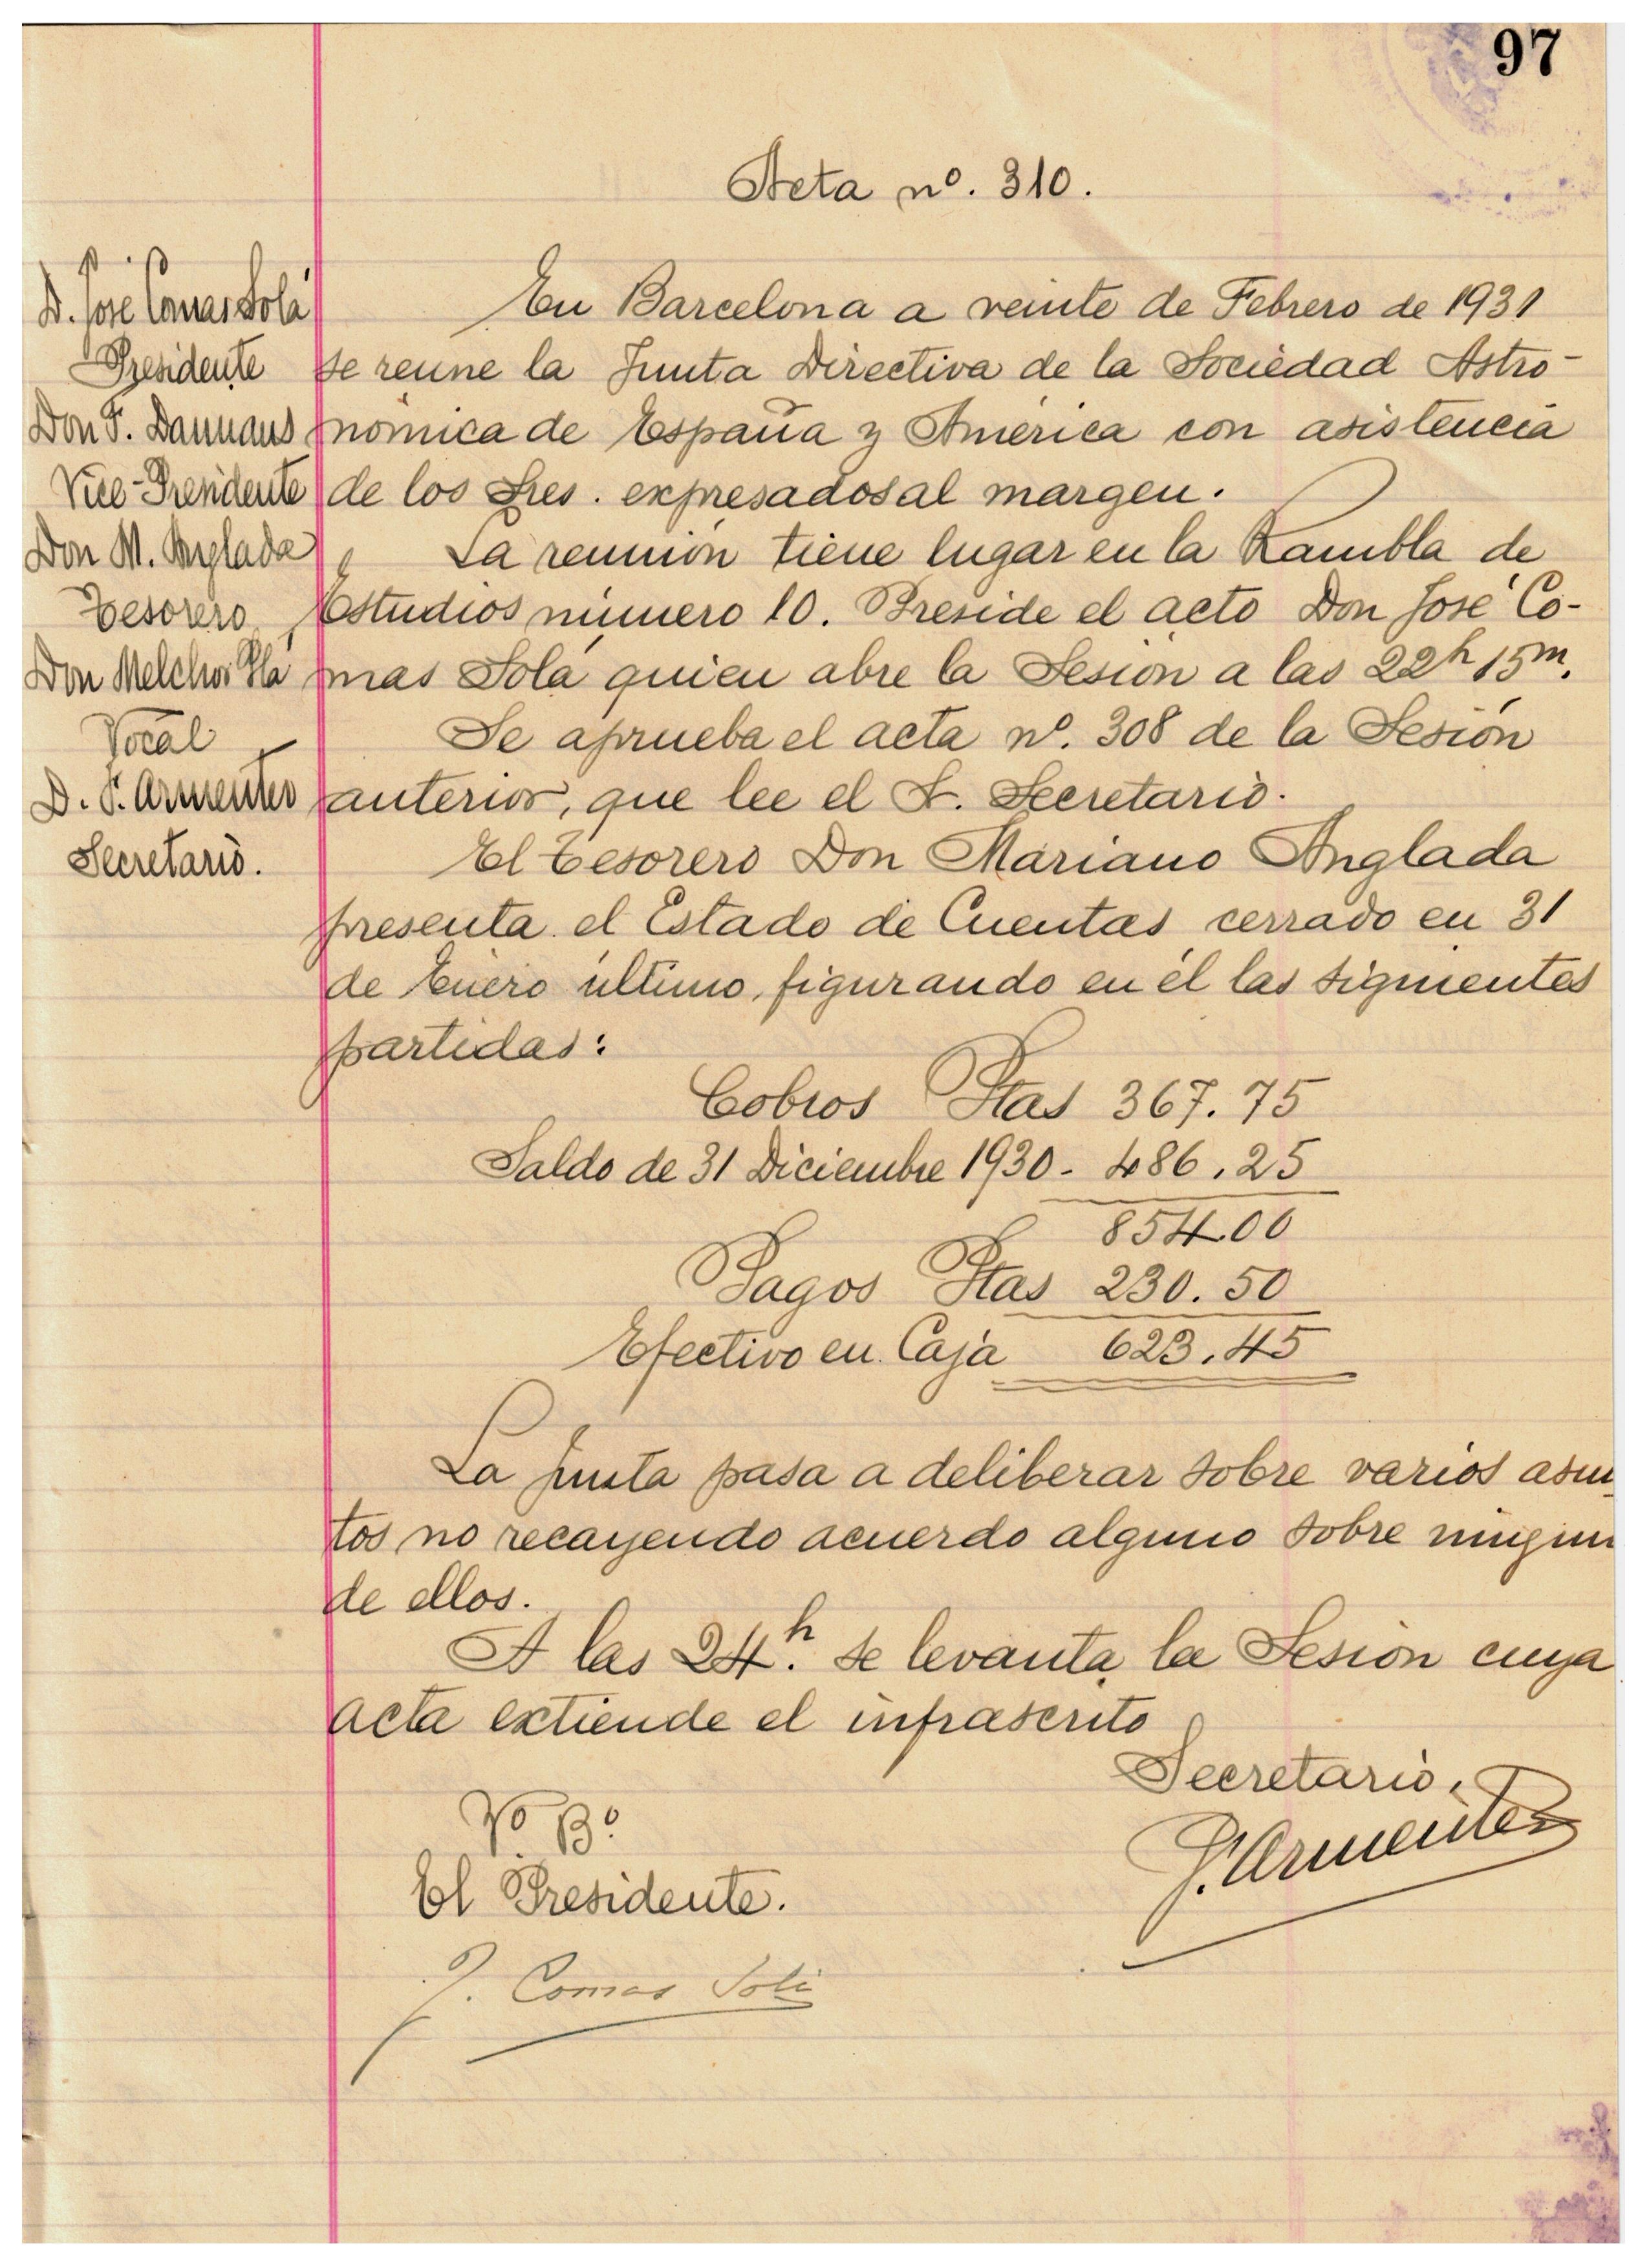 97
Acta nº. 310.
D. José Comas Solá
Presidente
Don F. Dannans
Vice-Presidente
Don M. Anglada
Tesorero
Don Melchor Plá
Vocal
D. P. Armenter
Secretario.
En Barcelona a veinte de Febrero de 1931
se reune la Junta Directiva de la Sociedad Astro-
nómica de España y América con asistencia
de los Sres. expresados al margen.
La reunión tiene lugar en la Rambla de
Estudios número 10. Preside el acto Don José Co-
mas Solá quien abre la Sesión a las 22h 15m.
Se aprueba el acta nº. 308 de la Sesión
anterior, que lee el S. Secretario.
El Tesorero Don Mariano Anglada
presenta el Estado de Cuentas cerrado en 31
de Enero último, figurando en él las siguientes
partidas:
Cobros Ptas 367.75
Saldo de 31 Diciembre 1930 - 486.25
854.00
Pagos Ptas 230.50
Efectivo en Caja 623.45
La Junta pasa a deliberar sobre varios asun-
tos no recayendo acuerdo alguno sobre ningun
de ellos.
A las 24h. se levanta la Sesión cuya
acta extiende el infrascrito
Secretario.
P. Armenter
Vº Bº
El Presidente.
J. Comas Solá